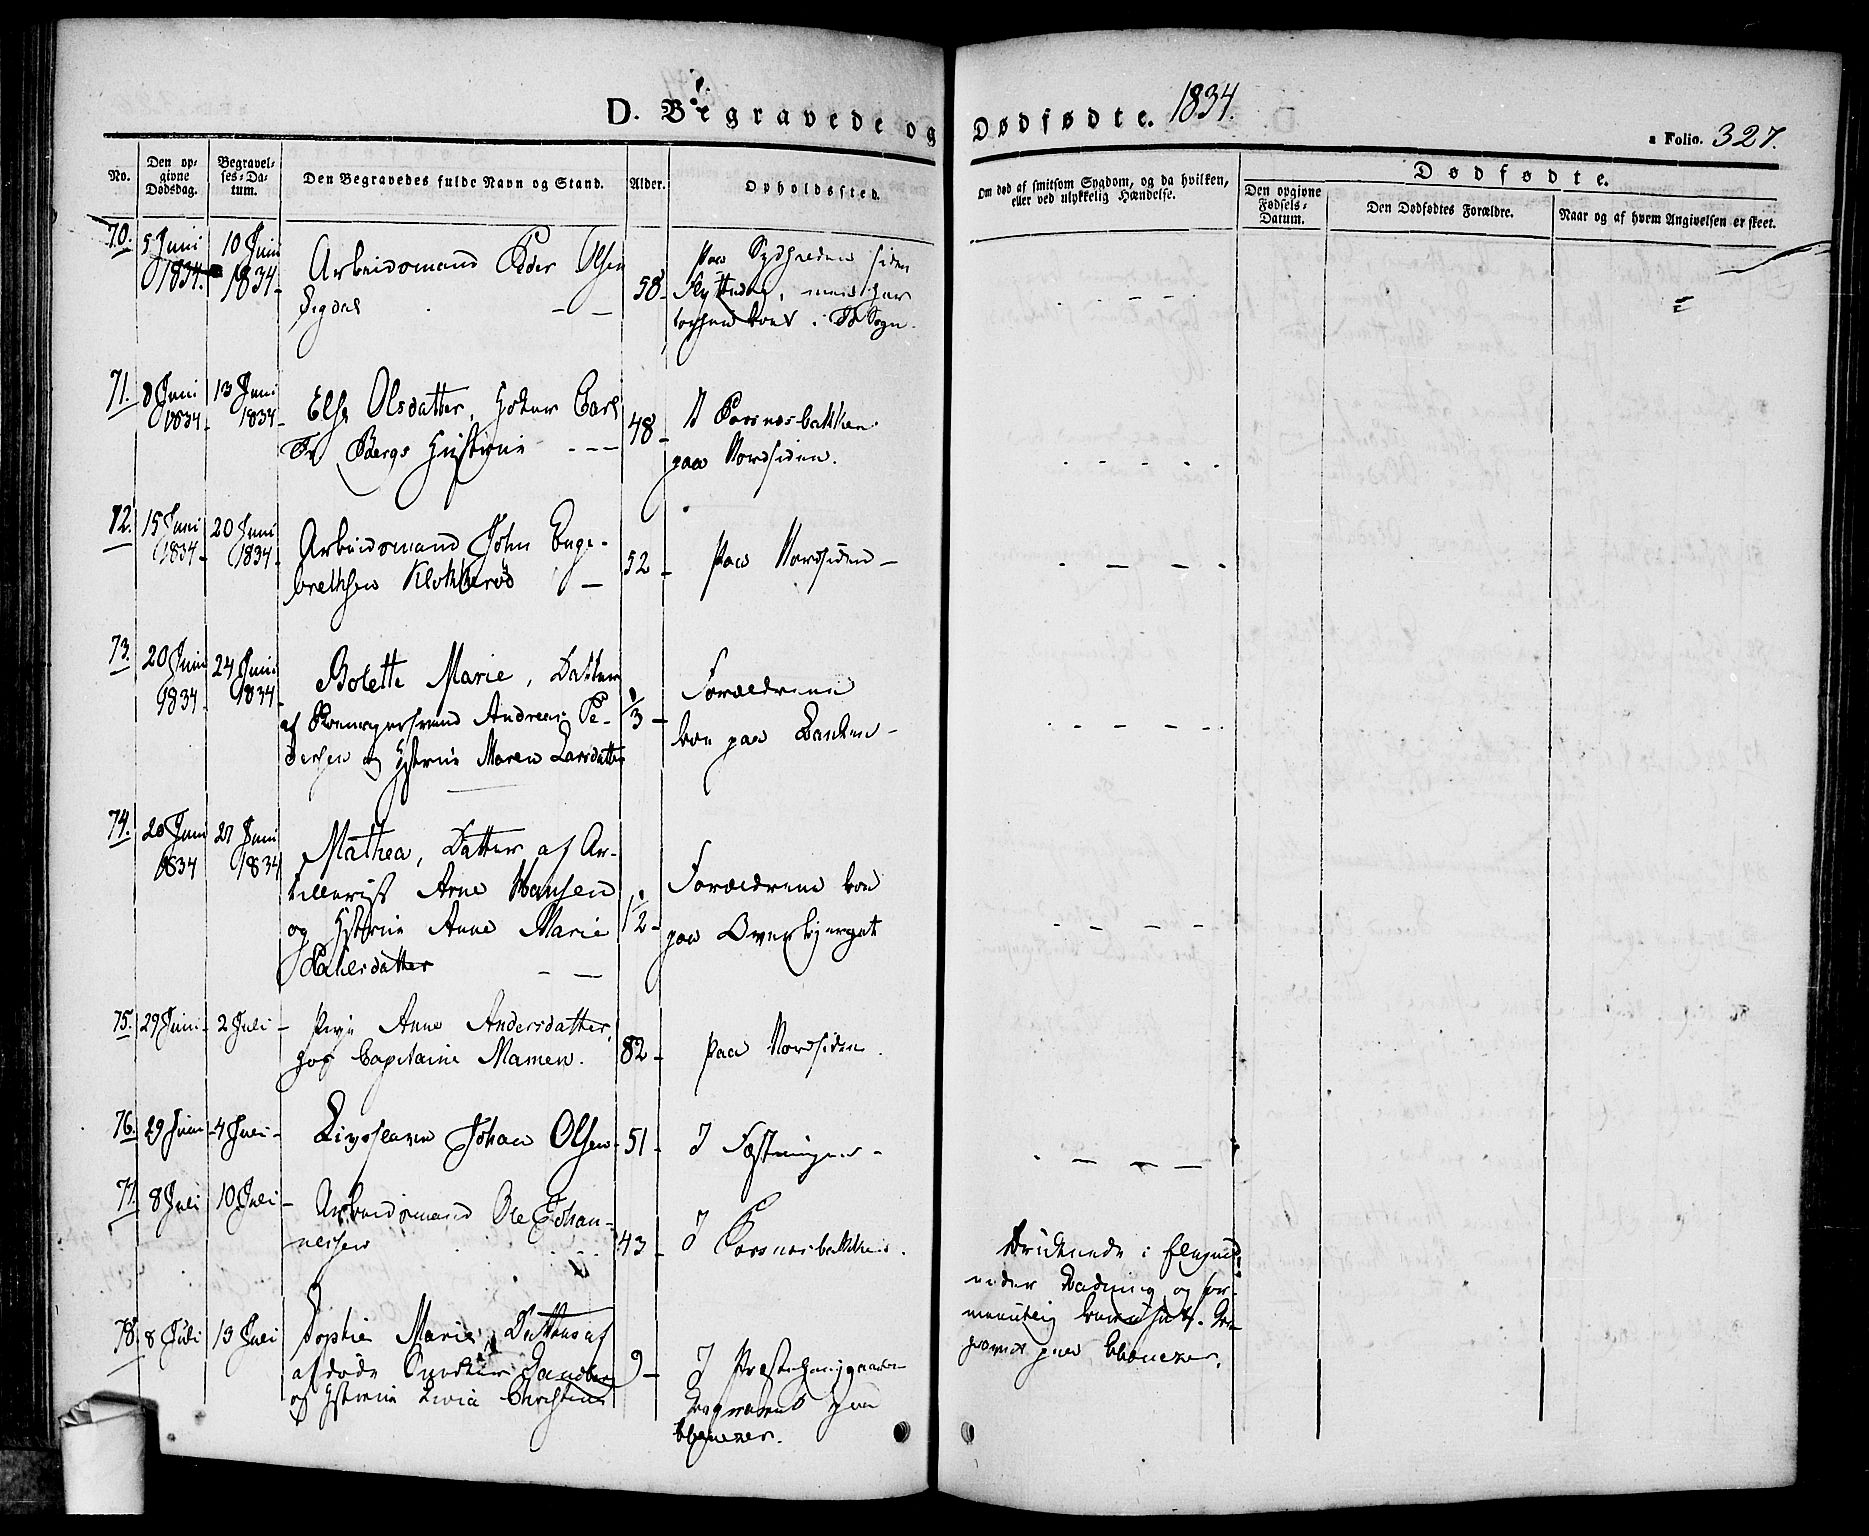 D. Begravede og Dødfødte. 1834.
a Folio. 327.
No.
Den op-
givne
Dødsdag.
Begravel-
ses-Da-
tum.
Den Begravedes fulde Navn og Stand.
Alder.
Opholdssted.
Om død af smitsom Sygdom, og da hvilken,
eller ved ulykkelig Hændelse.
Dødfødte.
Den opgivne
Fødsels-
Datum.
Den Dødfødtes Forældre.
Naar og af hvem Angivelsen er skeet.
70.
5 Juni
1834.
10 Juni
1834.
Arbeidsmand Peder Olsen
Sigdal
58
paa Sydsiden siden
71.
8 Juni
1834.
13 Juni
1834.
Else Olsdatter, Carl
Fr Bergs Hustrue
48
I Porsnesbakken
paa Nordsiden.
72.
15 Juni
1834
20 Juni
1834
Arbeidsmand John Enge-
brethsen Klokkerød
52
paa Nordsiden
73.
20 Juni
1834
24 Juni
1834
Bolette Marie, Datter
af Andreas Pe-
dersen og Hstrue Maren Larsdatter
1/3
Forældrene
boe paa Banken
74.
20 Juni
1834
27 Juni
1834
Mathea, Datter af Ar-
tillerist Arne Hansen
og Hstrue Anne Marie
1/2
Forældrene boe
paa Overbjerget
75.
29 Juni
2 Juli
Pige Anne Andersdatter,
hos Capitaine Mamen.
82
paa Nordsiden.
76.
29 Juni
4 Juli
Livsslaven Johan Olsen
51
I Fæstningen
77.
8 Juli
10 Juli
Arbeidsmand Ole Johan-
nessen
43
I Porsnesbakken.
Druknede i
under Badning og for-
78.
8 Juli
13 Juli
Sophie Marie, Datter af
afdøde
og Hstrue Livia Christine
9
I
Begravet paa
Ebenezer.